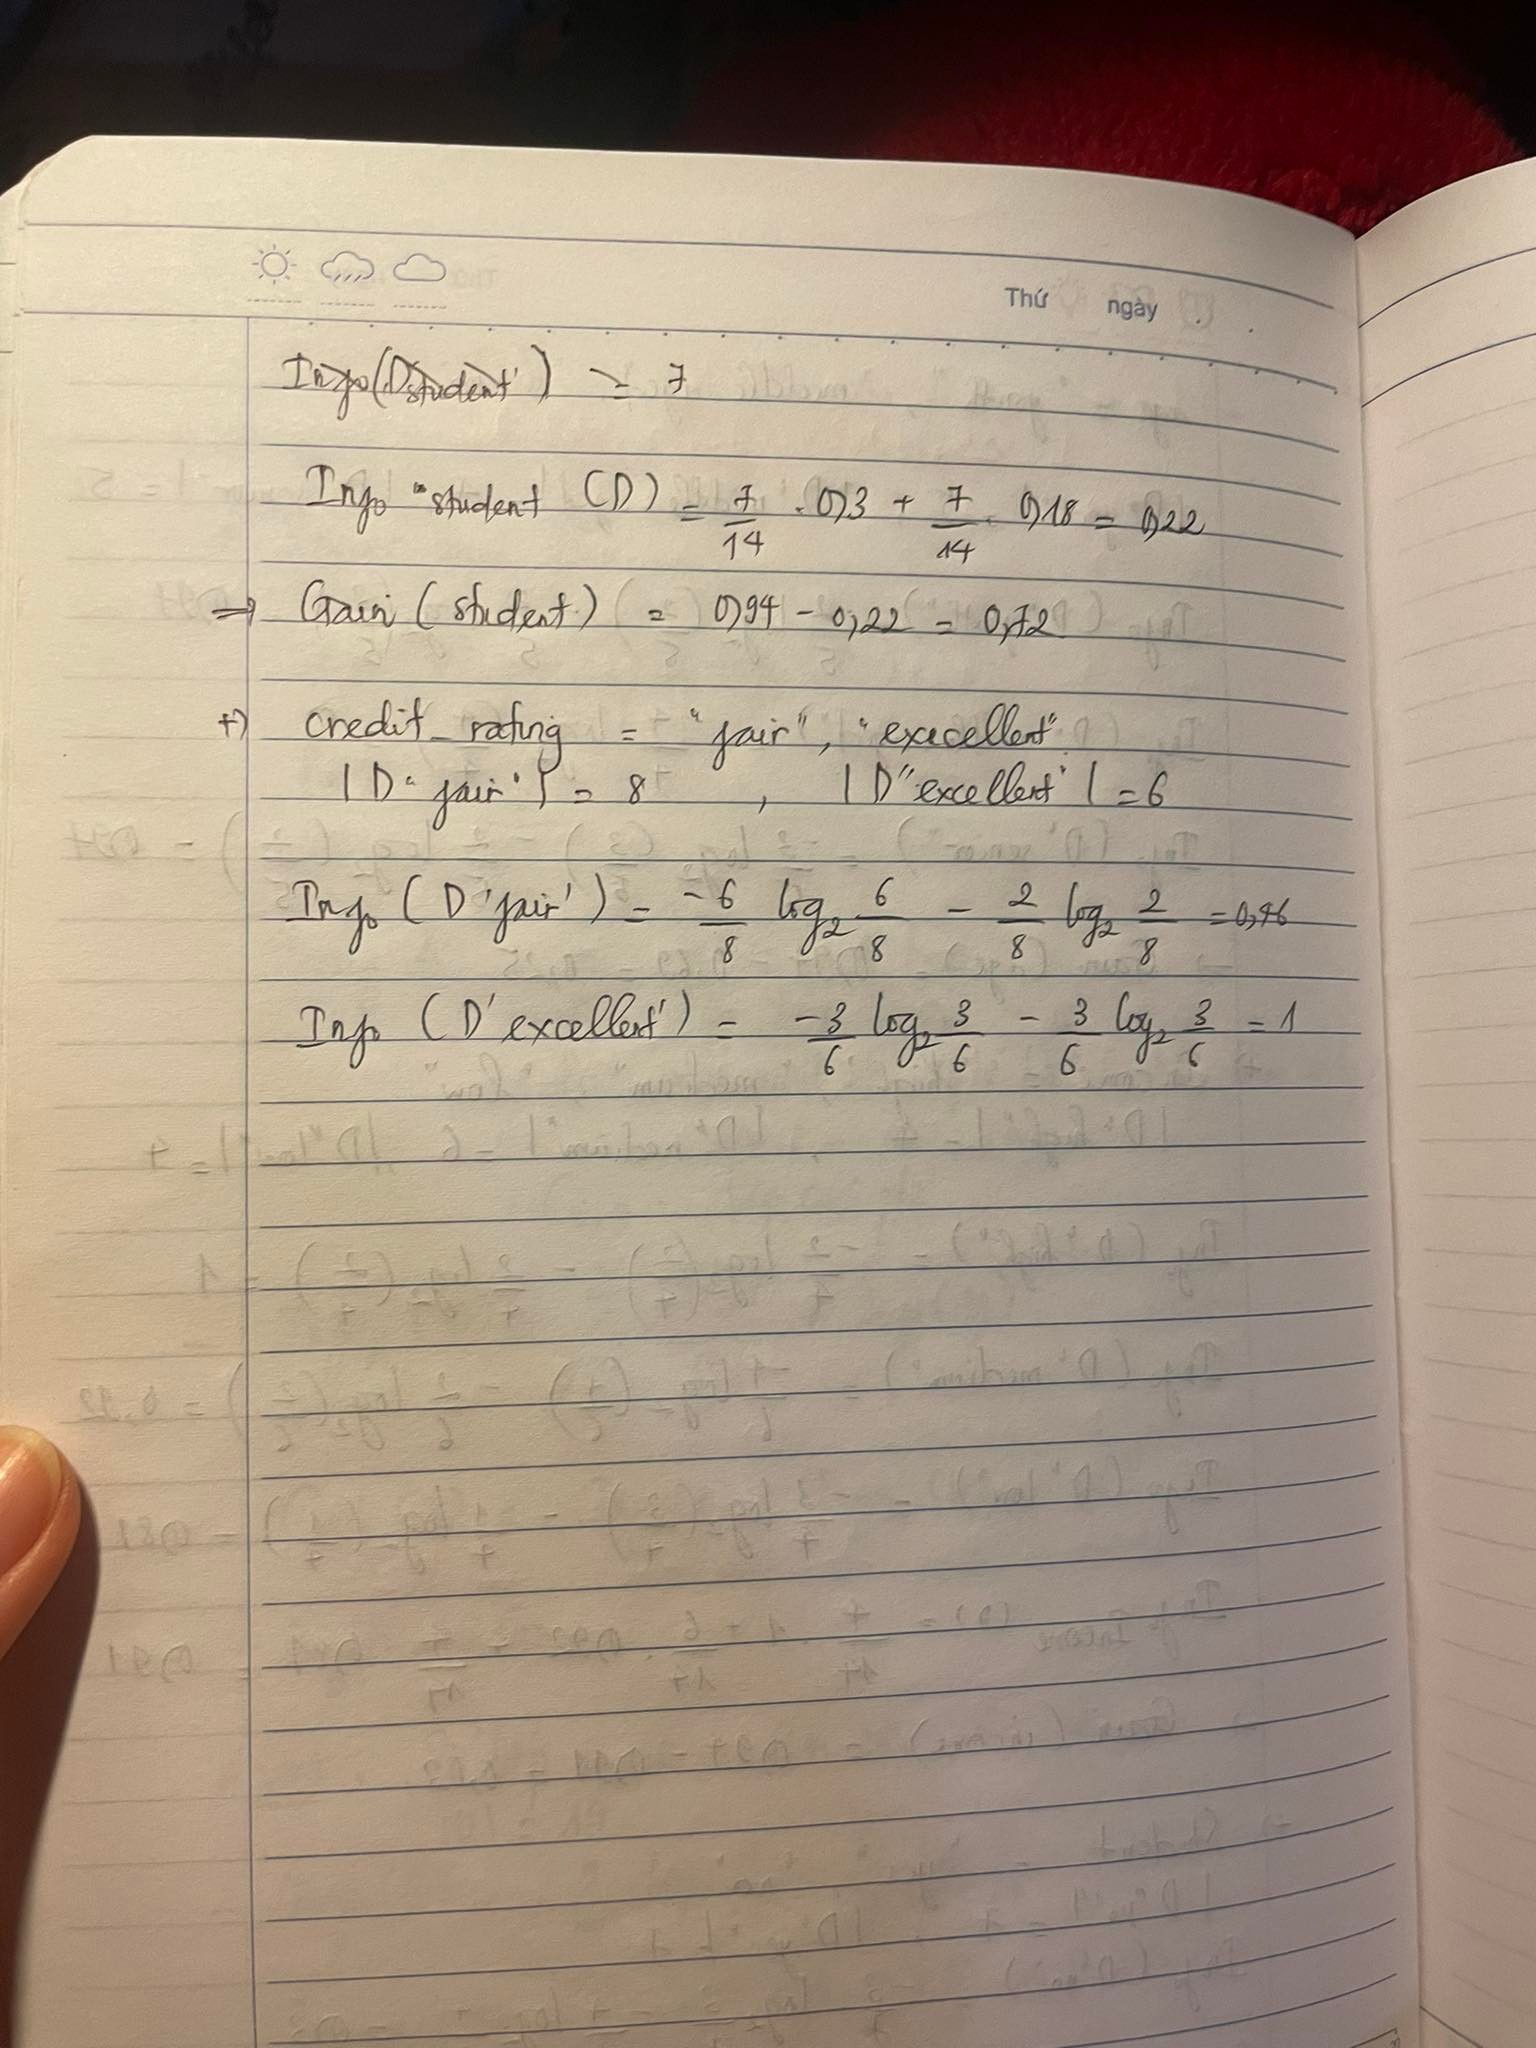 Thứ ngày
Info(Dstudent') = 7
Info "student (D) = 7/14 . 0,3 + 7/14 . 0,18 = 0,22
=> Gain (student) = 0,94 - 0,22 = 0,72
+) credit_rating = "fair", "execellent"
|D"fair'| = 8 , |D"excellent"| = 6
Info (D'fair') = -6/8 log2 6/8 - 2/8 log2 2/8 = 0,46
Info (D'excellent') = -3/6 log2 3/6 - 3/6 log2 3/6 = 1